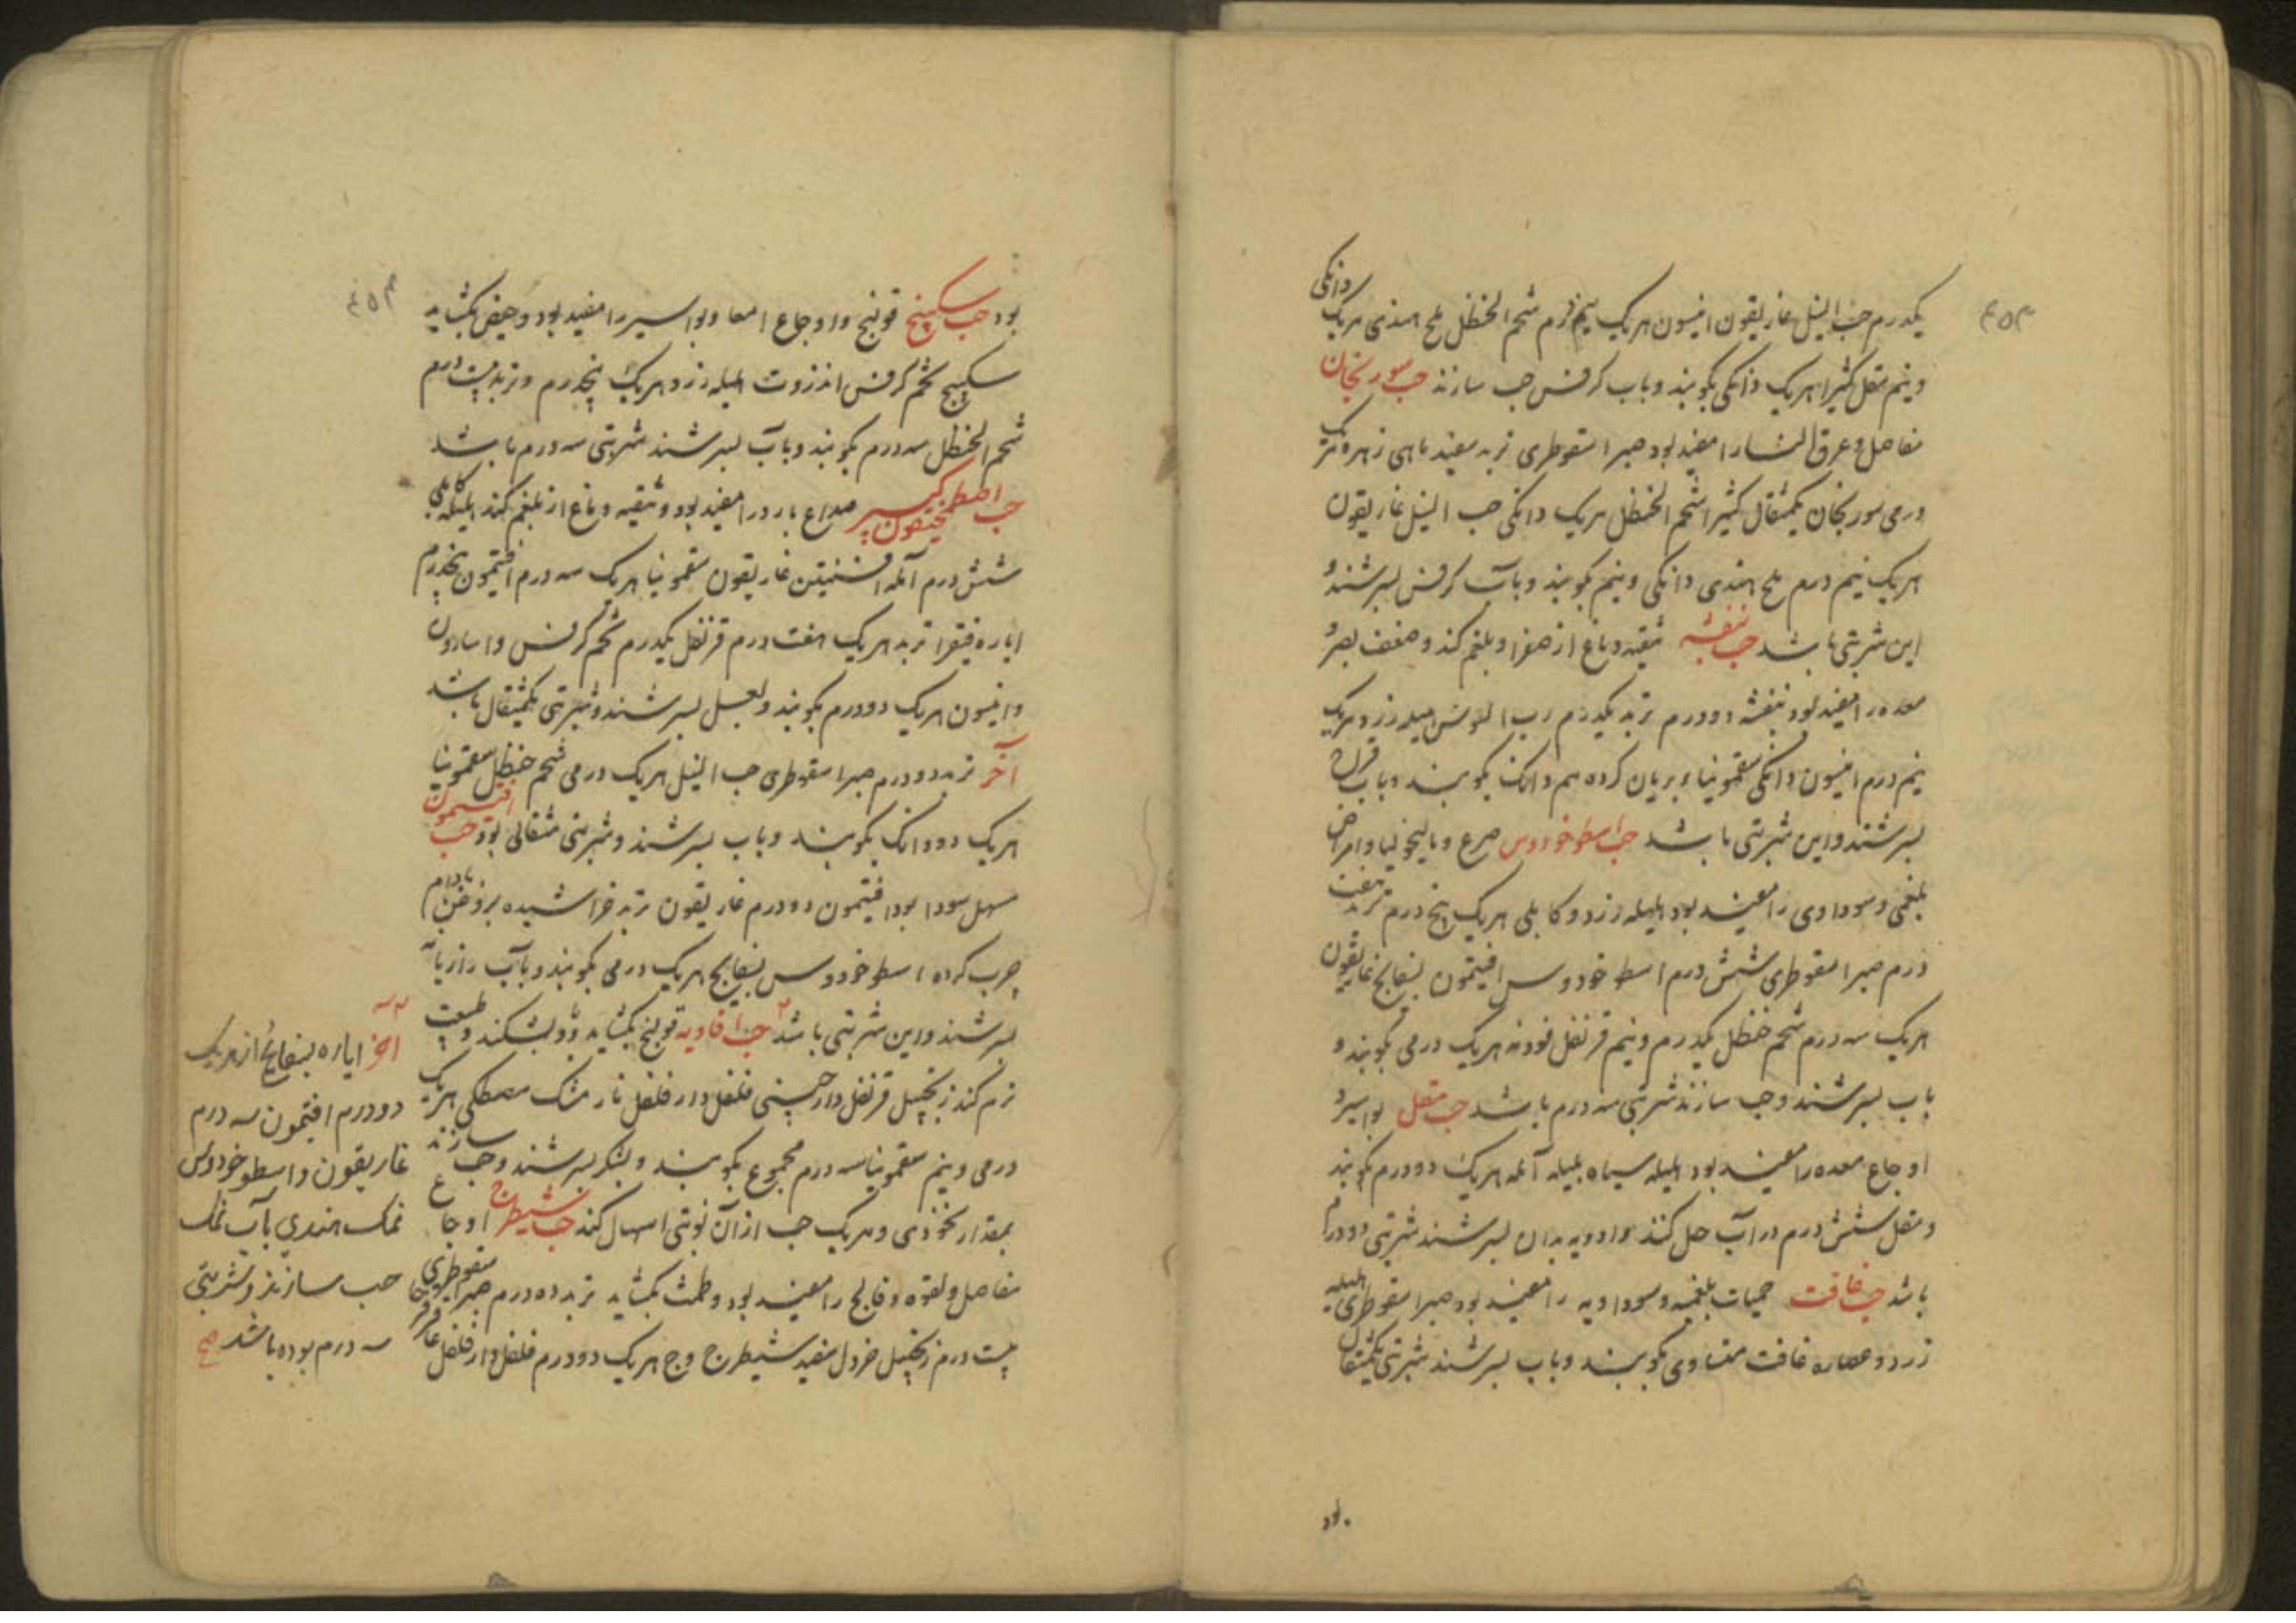 یکدرم حب النیل غاریقون انیسون هریک نیم درم شحم الحنظل ملح هندی هریک دانکی
و نیم مقل کثیرا هریک دانکی بکوبند و باب کرفس حب سازند حب سورنجان
مفاصل و عرق النسا را مفید بود صبر اسقوطری تربد سفید ماهی زهره هریک
درمی سورنجان یکمثقال کثیرا شحم الحنظل هریک دانکی حب النیل غاریقون
هریک نیم درم ملح هندی دانکی و نیم بکوبند و بآب کرفس بسرشند و
این شربتی باشد حب بنفشه تنقیه دماغ از صفرا و بلغم کند و ضعف بصر و
معده را مفید بود بنفشه دودرم تربد یکدرم رب السوس هلیله زرد هریک
نیم درم انیسون دانکی سقمونیا بریان کرده نیم دانک بکوبند و باب قراح
بسرشند و این شربتی باشد حب اسطوخودوس صرع و مالیخولیا و امراض
بلغمی و سوداوی را مفید بود هلیله زرد و کابلی هریک پنج درم تربد هفت
درم صبر اسقوطری شش درم اسطوخودوس افتیمون بسفایج غاریقون
هریک سه درم شحم حنظل یکدرم و نیم قرنفل فودنه هریک درمی بکوبند و
باب بسرشند و حب سازند شربتی سه درم باشد حب مقل بواسیر و
اوجاع معده را مفید بود هلیله سیاه بلیله آمله هریک دودرم بکوبند
و مقل شش درم در آب حل کنند و ادویه بدان بسرشند شربتی دودرم
باشد حب غافت حمیات بلغمیه و سوداویه را مفید بود صبر اسقوطری هلیله
زرد و عصاره غافت متساوی بکوبند و باب بسرشند شربتی یکمثقال
بود
بود حب سکبینج قولنج و اوجاع امعا و بواسیر را مفید بود و حیض بکشاید
سکبینج تخم کرفس انزروت هلیله زرد هریک پنجدرم و تربد بیست درم
شحم الحنظل سه درم بکوبند و بآب بسرشند شربتی سه درم باشد
حب اصطمخیقون کبیر صداع بارد را مفید بود و تنقیه دماغ از بلغم کند هلیله کابلی
شش درم آمله افسنتین غاریقون سقمونیا هریک سه درم افتیمون پنجدرم
ایاره فیقرا تربد هریک هفت درم قرنفل یکدرم تخم کرفس و اسارون
و انیسون هریک دودرم بکوبند و بعسل بسرشند و شربتی یکمثقال باشد
آخر تربد دودرم صبر اسقوطری حب النیل هریک درمی شحم حنظل سقمونیا
هریک دو دانک بکوبند و باب بسرشند و شربتی مثقالی بود حب افتیمون
مسهل سودا بود افتیمون دودرم غاریقون تربد خراشیده بروغن بادام
چرب کرده اسطوخودوس بسفایج هریک درمی بکوبند و بآب رازیانه
بسرشند و این شربتی باشد حب افاویه قولنج بکشاید و باد بشکند و طبیعت
نرم کند زنجبیل قرنفل دارچینی فلفل دارفلفل نارمشک مصطکی هریک
درمی و نیم سقمونیا سه درم مجموع بکوبند و بشکر بسرشند و حب سازند
بمقدار نخودی و هریک حب از آن نوبتی اسهال کند حب شیطرج اوجاع
مفاصل و لقوه و فالج را مفید بود و طمث بکشاید تربد ده درم صبر سقوطری
بیست درم زنجبیل خردل سفید شیطرج وج هریک دودرم فلفل دارفلفل عاقرقرحا
آخر ایاره بسفایج از هریک
دودرم افتیمون سه درم
غاریقون و اسطوخودوس
نمک هندی بآب نمک
حب سازند و شربتی
سه درم بوده باشد صح